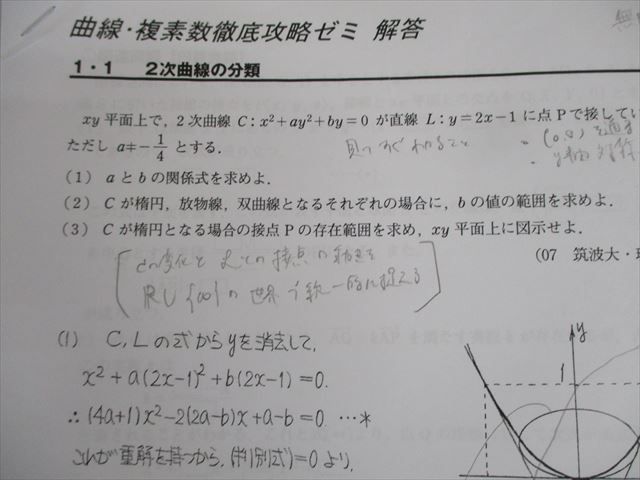 曲線・複素数徹底攻略ゼミ 解答
1・1 2次曲線の分類
xy 平面上で，2次曲線 C：x²+ay²+by=0 が直線 L：y=2x-1 に点Pで接してい
ただし a≠-1/4 とする．
見てすぐわかること
(0,0)を通る
y軸対称
(1) aとbの関係式を求めよ．
(2) Cが楕円，放物線，双曲線となるそれぞれの場合に，bの値の範囲を求めよ．
(3) Cが楕円となる場合の接点Pの存在範囲を求め，xy平面上に図示せよ．
(07 筑波大・
の変化と Lとの接点の
R∪{∞}の世界で統一的に捉える
(1) C, Lの式からyを消去して,
x²+a(2x-1)²+b(2x-1)=0.
∴ (4a+1)x²-2(2a-b)x+a-b=0 …*
これが重解を持つから, (判別式)=0より,
y
1